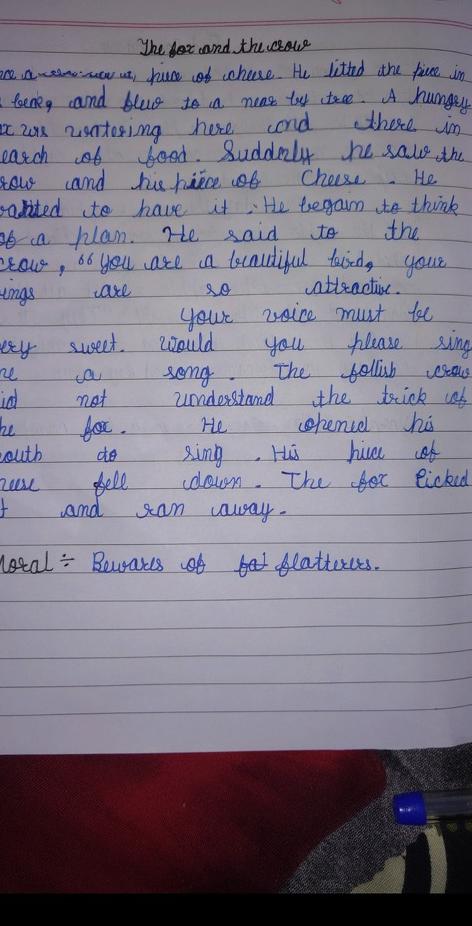 The fox and the crow
nce a piece of cheese. He litted the piece in
s beak, and flew to a near by tree. A hungry
ox was wateering here and there in
earch of food. Suddenly he saw the
row and his piece of Cheese. He
wanted to have it. He began to think
of a plan. He said to the
crow, "you are a beautiful bird, your
ings are so attractive.
your voice must be
ery sweet. Would you please sing
me a song. The follish crow
id not understand the trick of
he fox. He opened his
outh to sing. His piece of
heese fell down. The fox Picked
t and ran away.
Moral ÷ Bewares of flatterers.